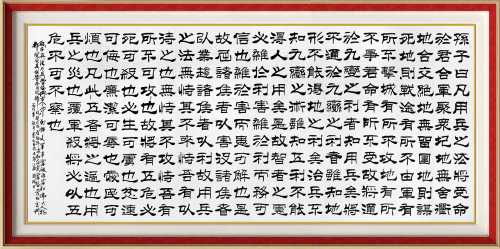 孫子曰凡用兵之法將受命
於君合軍聚衆圮地無舍衢
地合交絕地無留圍地則謀
死地則戰途有所不由軍有
所不擊城有所不攻地有所
不爭君命有所不受故將通
於九變之利者知用兵矣將
不通於九變之利者雖知地
形不能得地之利矣治兵不
知九變之術雖知五利不能
得人之用矣是故智者之慮
必雜於利害雜於利而務可
信也雜於害而患可解也是
故屈諸侯者以害役諸侯者
以業趨諸侯者以利故用兵
之法無恃其不來恃吾有以
待之也無恃其不攻恃吾有
所不可攻也故將有五危必
死可殺也必生可虜也忿速
可侮也廉潔可辱也愛民可
煩也凡此五者將之過也用
兵之災也覆軍殺將必以五
危不可不察也